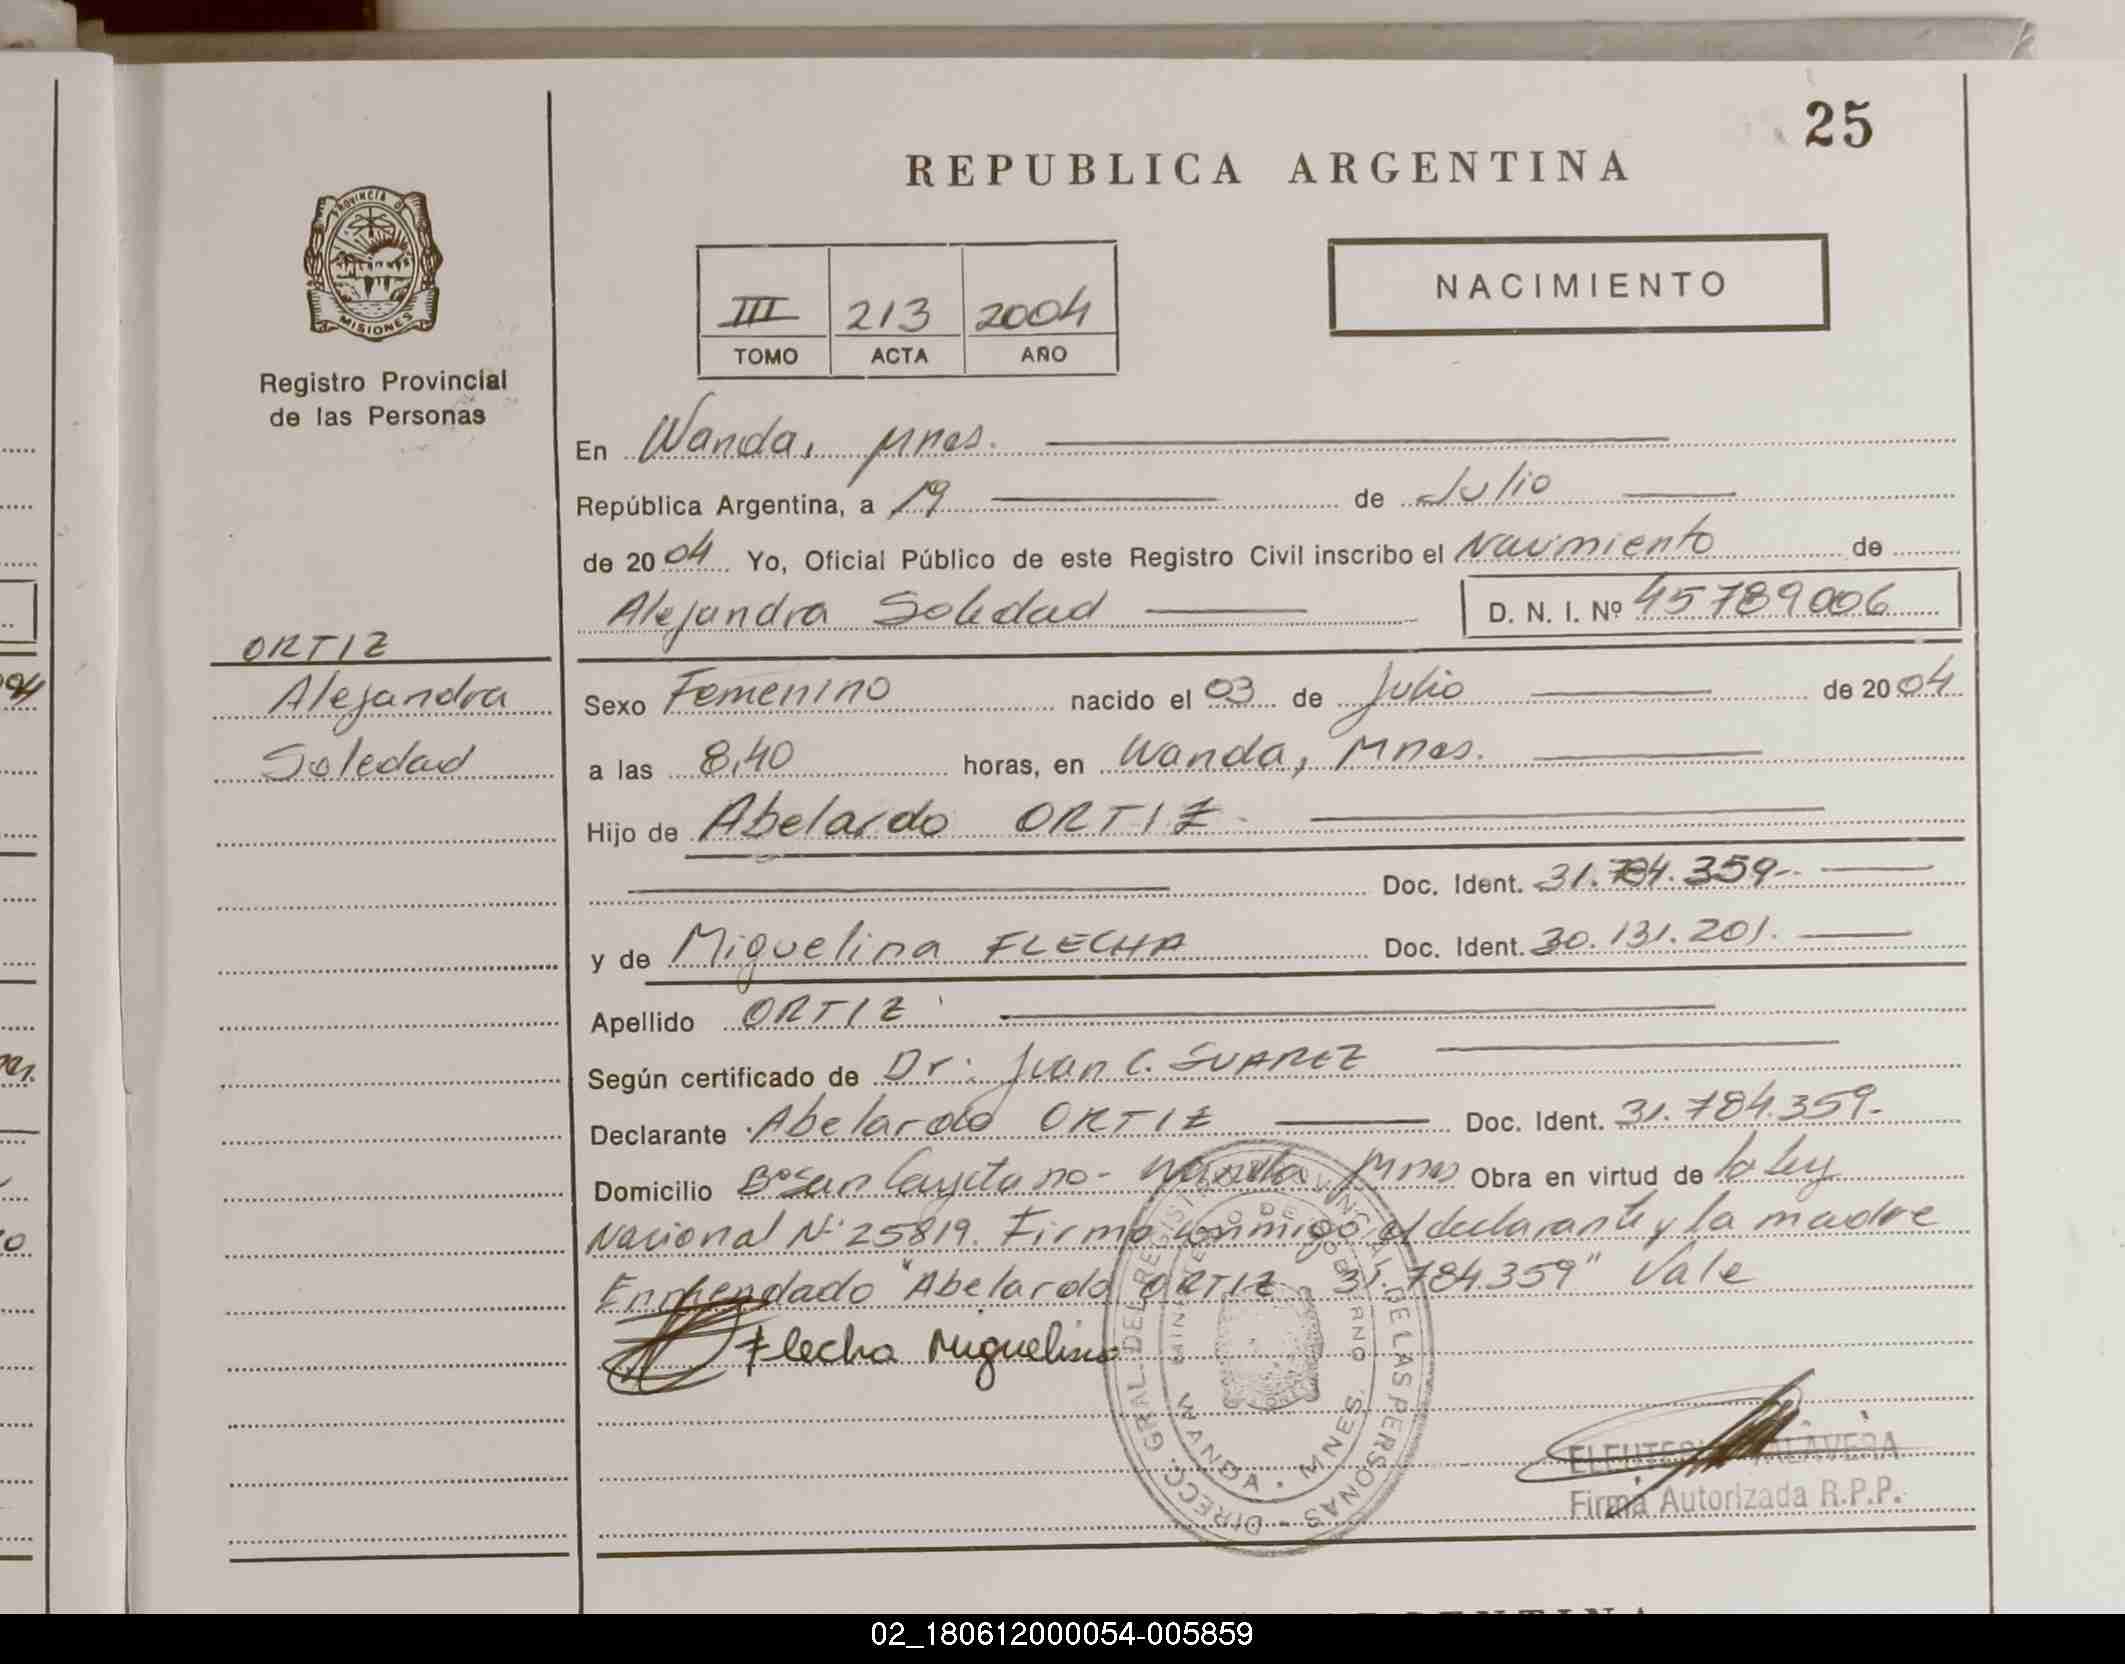 25
REPUBLICA ARGENTINA
PROVINCIA DE
MISIONES
Registro Provincial
de las Personas
III 213 2004
TOMO ACTA AÑO
NACIMIENTO
En Wanda, Mnes.
República Argentina, a 19 de Julio
de 2004 Yo, Oficial Público de este Registro Civil inscribo el Nacimiento de
Alejandra Soledad D. N. I. Nº 45789006
ORTIZ
Alejandra
Soledad
Sexo Femenino nacido el 03 de Julio de 2004
a las 8,40 horas, en Wanda, Mnes.
Hijo de Abelardo ORTIZ
Doc. Ident. 31.784.359-
y de Miguelina FLECHA Doc. Ident. 30.131.201.
Apellido ORTIZ
Según certificado de Dr. Juan C. SUAREZ
Declarante Abelardo ORTIZ Doc. Ident. 31.784.359-
Domicilio Bº San Cayetano - Wanda Mnes Obra en virtud de la ley
Nacional Nº 25819. Firma conmigo el declarante y la madre
Enmendado "Abelardo ORTIZ 31.784.359" Vale
Flecha Miguelina
DIRECC. GRAL. DEL REGISTRO PROVINCIAL DE LAS PERSONAS
MINISTERIO DE GOBIERNO
WANDA - MNES.
TALAVERA
Firma Autorizada R.P.P.
02_180612000054-005859